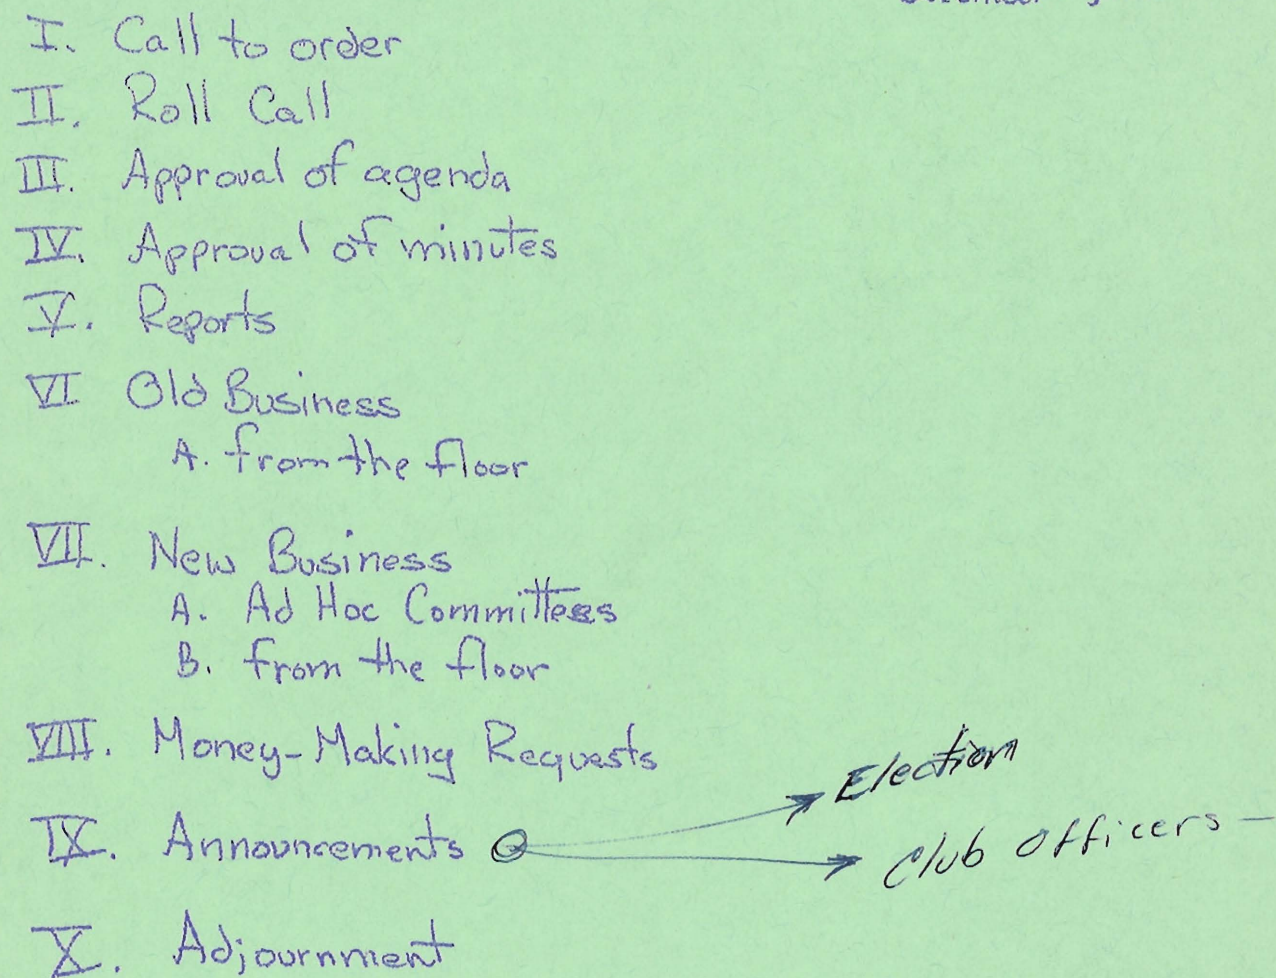 I. Call to order
II. Roll Call
III. Approval of agenda
IV. Approval of minutes
V. Reports
VI Old Business
A. from the floor
VII. New Business
A. Ad Hoc Committees
B. from the floor
VIII. Money-Making Requests
IX. Announcements
Election
Club Officers –
X. Adjournment